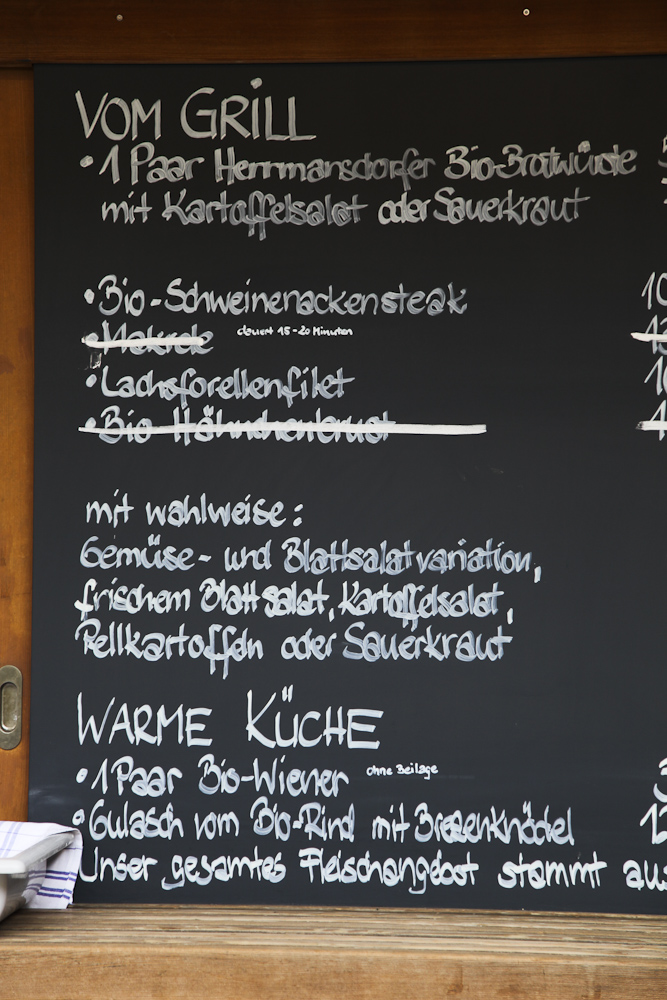 VOM GRILL
• 1 Paar Herrmansdorfer Bio-Bratwürste
mit Kartoffelsalat oder Sauerkraut
• Bio-Schweinenackensteak 10
• Makrele dauert 15-20 Minuten
• Lachsforellenfilet
• Bio Hähnchenbrust
mit wahlweise:
Gemüse- und Blattsalatvariation,
frischem Blattsalat, Kartoffelsalat,
Pellkartoffeln oder Sauerkraut
WARME KÜCHE
• 1 Paar Bio-Wiener ohne Beilage
• Gulasch vom Bio-Rind mit Brezenknödel
Unser gesamtes Fleischangebot stammt aus